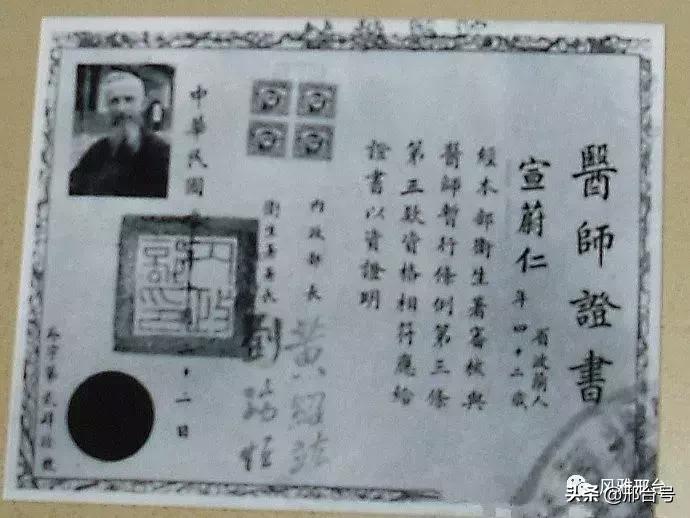 醫師證書
宣蔚仁
年四十二歲
經本部衛生署審核與
醫師暫行條例第三條
第五款資格相符應給
證書以資證明
內政部長
黃紹竑
衛生署署長
劉瑞恒
中華民國
十一日
风雅邢台
头条 @邢台号